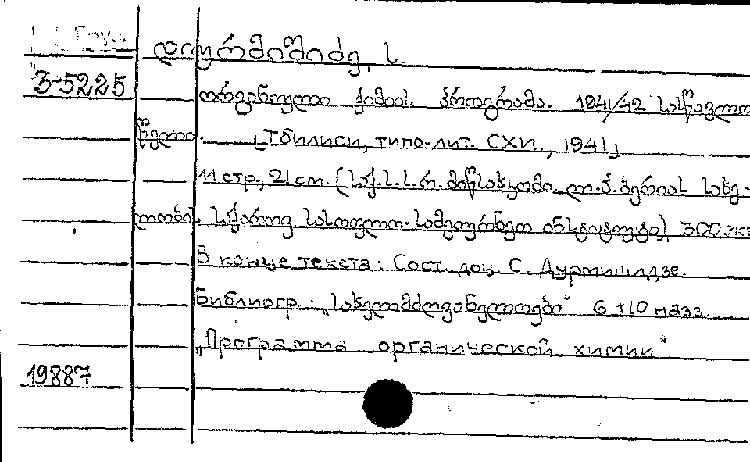 დურმიშიძე, ს.
3-5225
ორგანული ქიმიის პროგრამა. 1941/42 სასწავლო
წელი. [Тбилиси, типо-лит. СХИ., 1941]
11 стр., 21 см. (საქ. ს.ს.რ. მიწსახკომი. ლ.პ. ბერიას სახე-
ლობის საქართვ. სასოფლო-სამეურნეო ინსტიტუტი) 300 экз
В конце текста: Сост. доц. С. Дурмишидзе.
Библиогр.: „სახელმძღვანელოები“ 6
„Программа органической химии“
19887